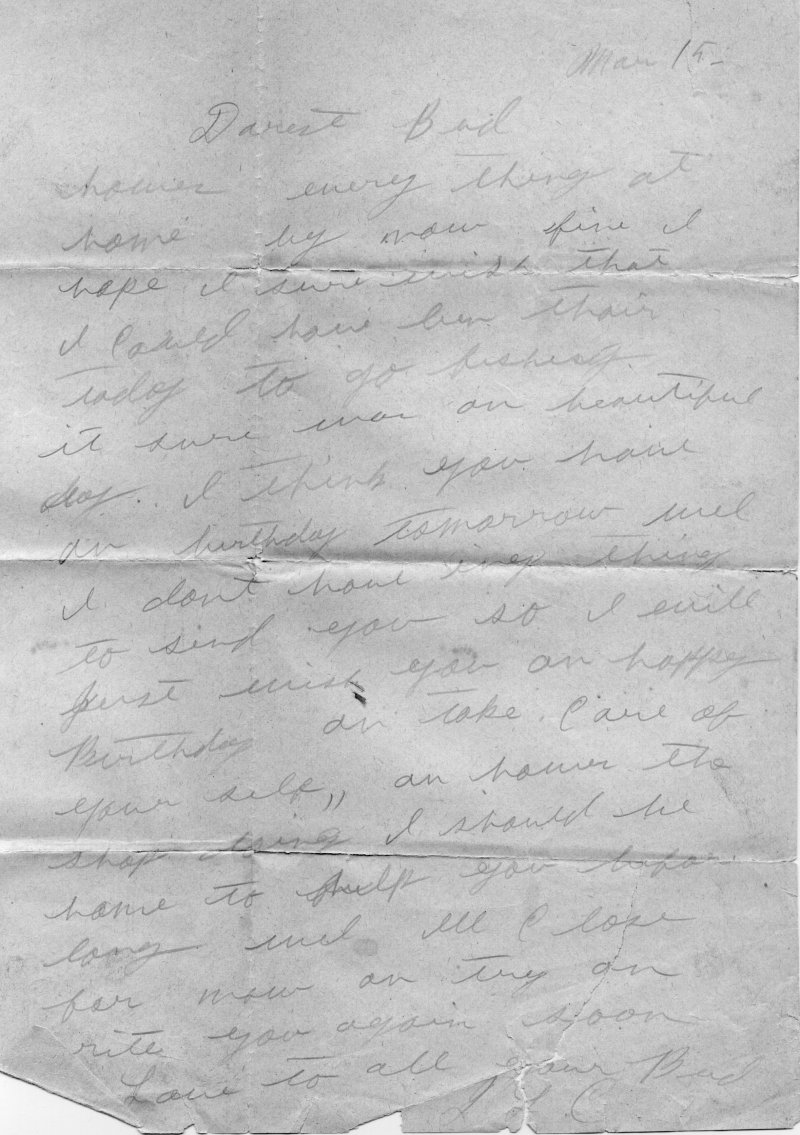 Mar 15-
Darest Bud
howes every thing at
home by now fine I
hope I sure wish that
I Could have ben thair
today to go fishing
it sure was an beautiful
day. I think you have
an birthday tomorrow wel
I dont have iney thing
to send you so I will
Just wish you an happy
Birthday an take Care of
your self,, an howes the
shop I should be
home to help you befor
long wel Ill Close
for now an try an
rite you again soon
Love to all your Bud